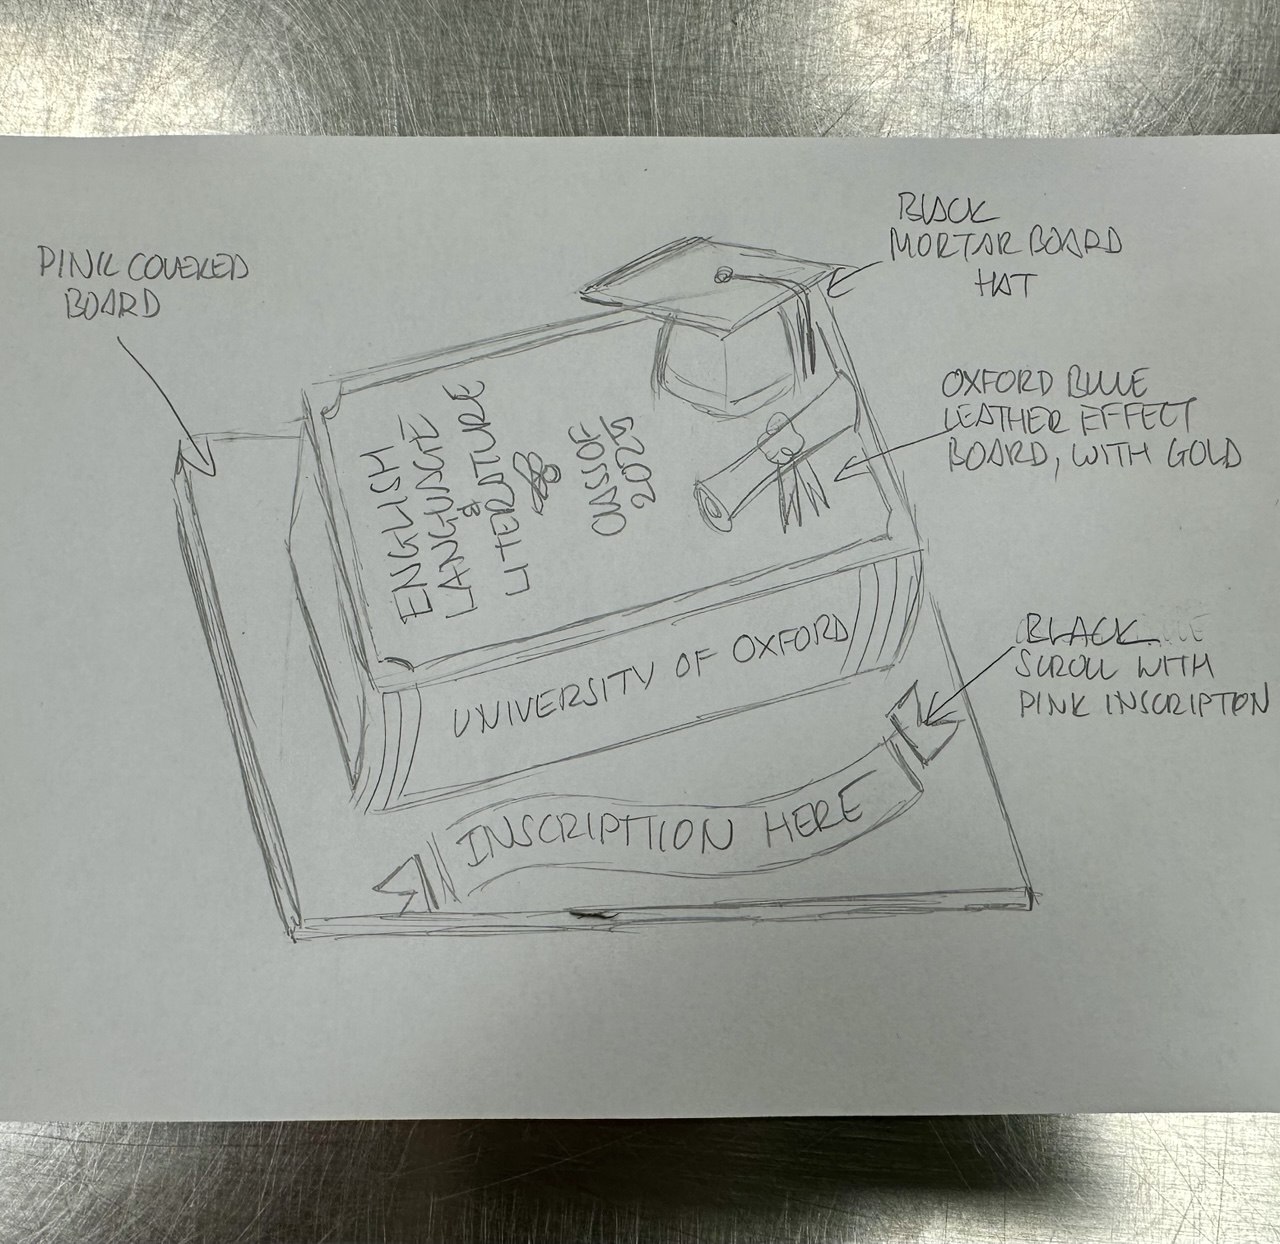 BLACK
MORTAR BOARD
HAT
PINK COVERED
BOARD
OXFORD BLUE
LEATHER EFFECT
BOARD, WITH GOLD
ENGLISH
LANGUAGE
&
LITERATURE
CLASS OF
2025
UNIVERSITY OF OXFORD
BLACK
SCROLL WITH
PINK INSCRIPTION
INSCRIPTION HERE